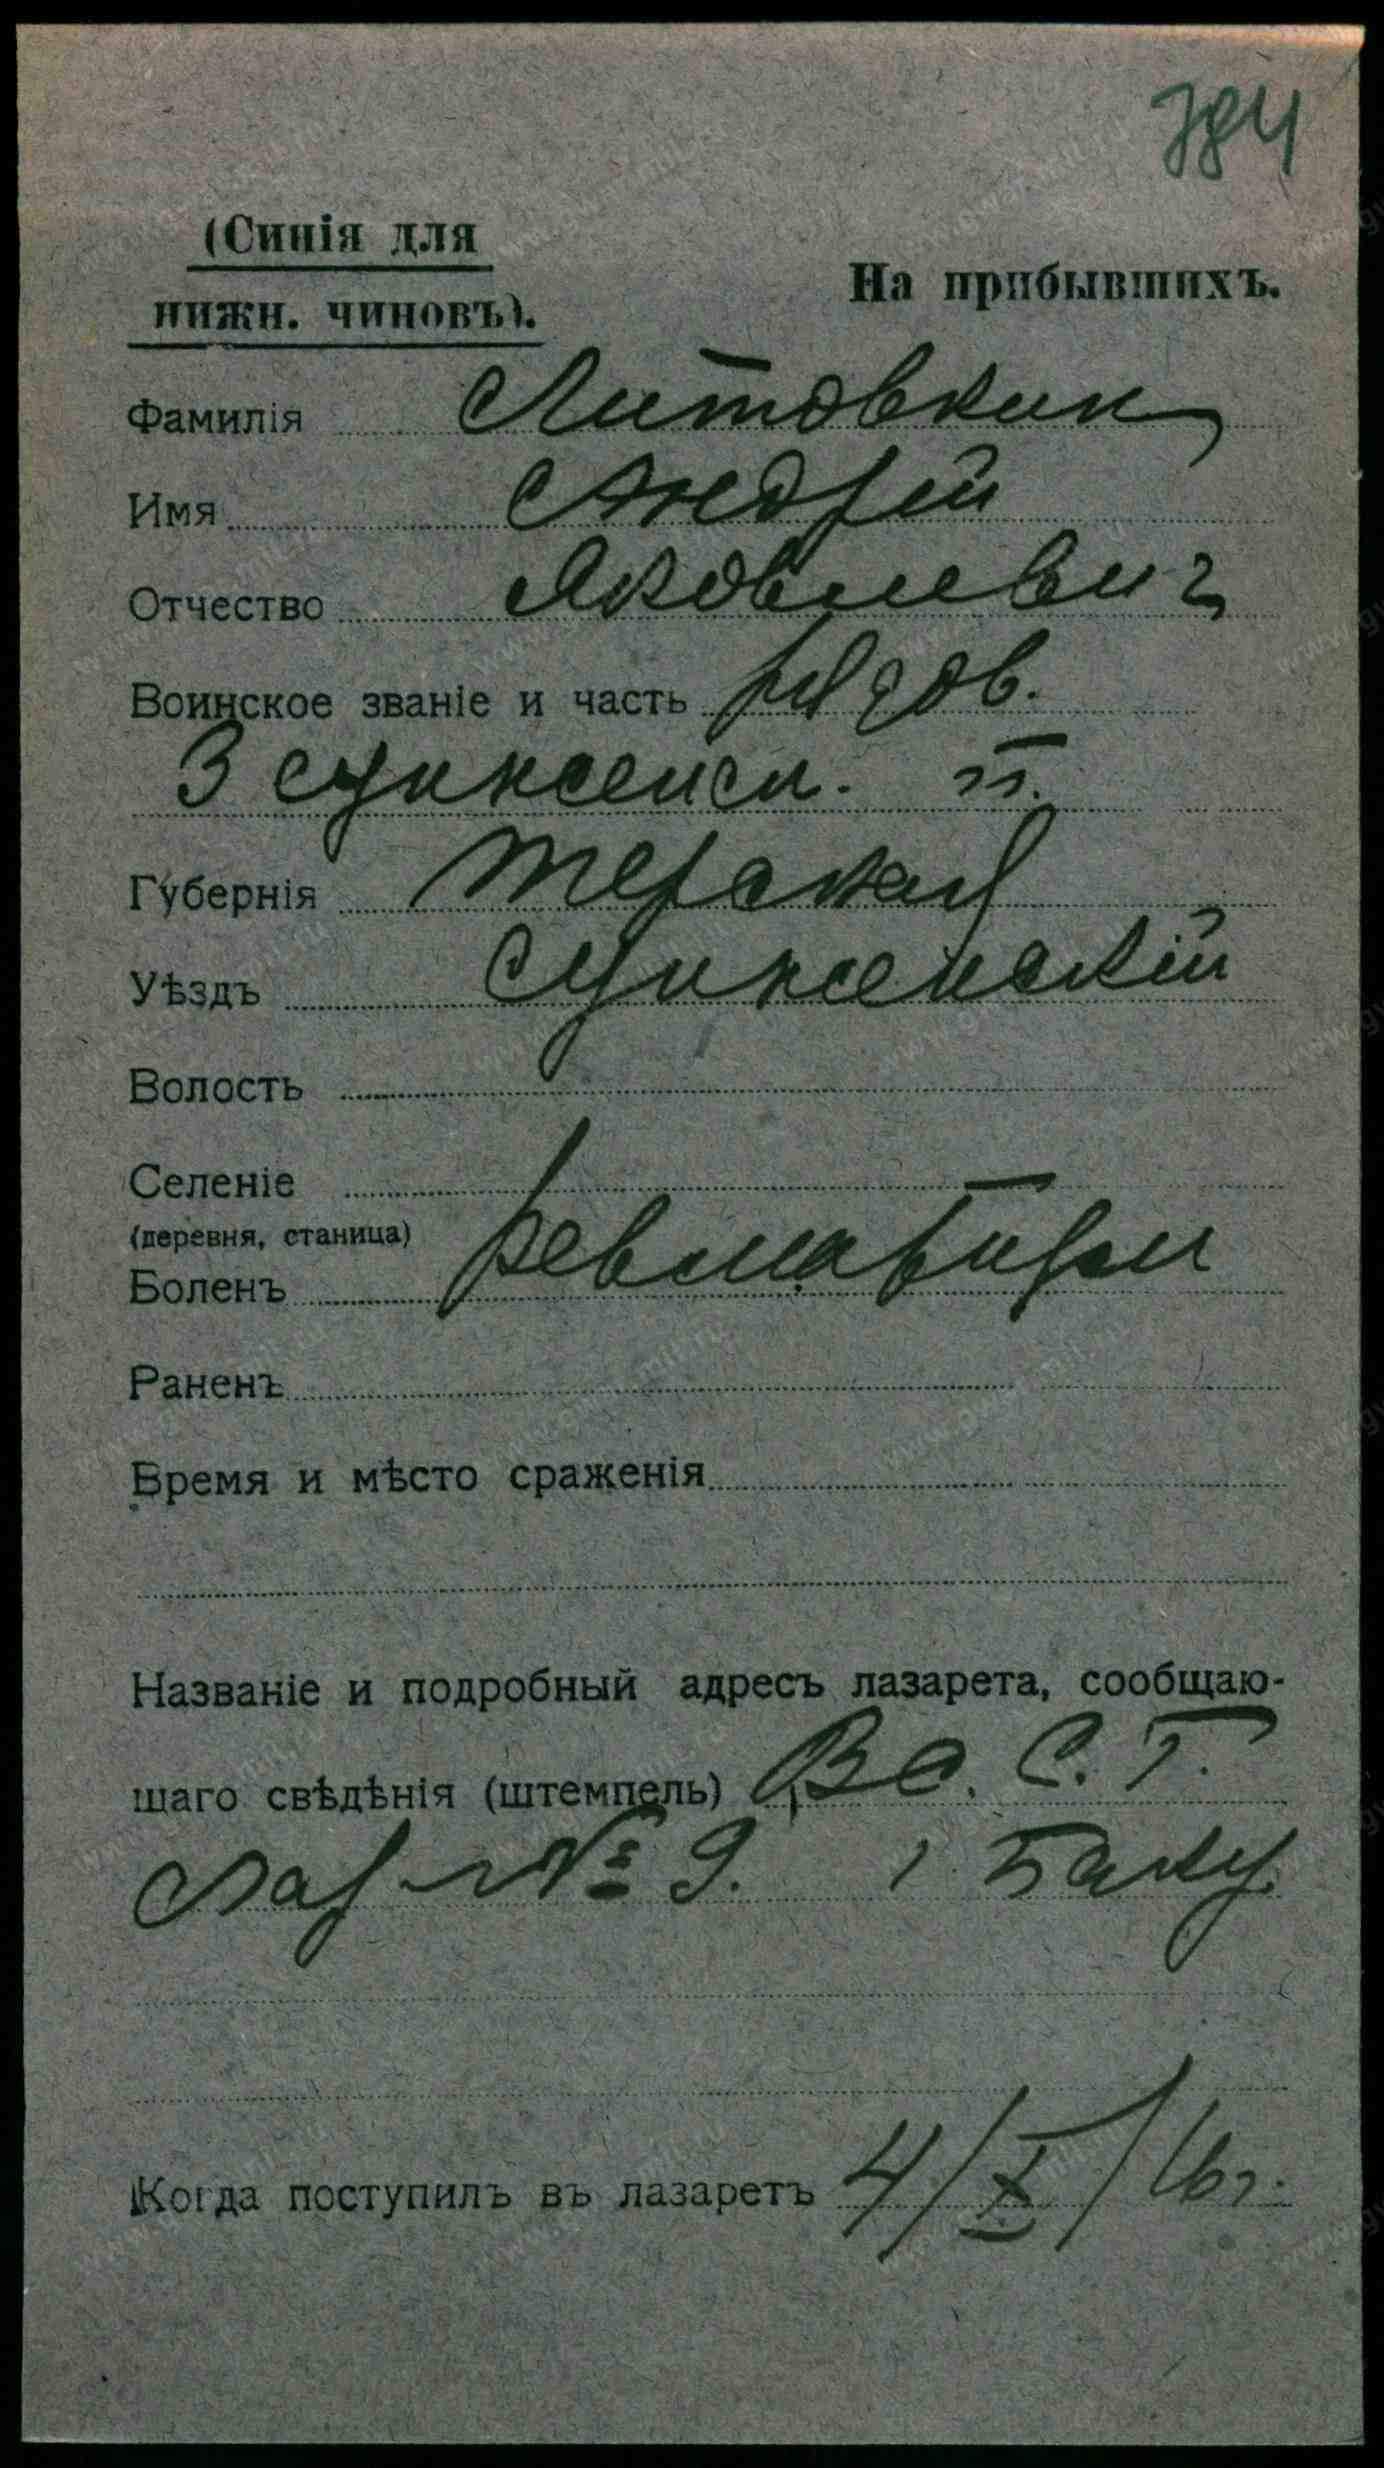 (Синія для
нижн. чиновъ).
На прибывшихъ.
Фамилія Литовкин
Имя Андрей
Отчество Яковлевич
Воинское званіе и часть рядов.
3 сунженск. п.
Губернія Терская
Уѣздъ Сунженскій
Волость
Селеніе
(деревня, станица)
Боленъ ревматизм
Раненъ
Время и мѣсто сраженія
Названіе и подробный адресъ лазарета, сообщаю-
щаго свѣдѣнія (штемпель) В С. Г.
Лаз № 9. г. Баку
Когда поступилъ въ лазаретъ 4/X/16г.